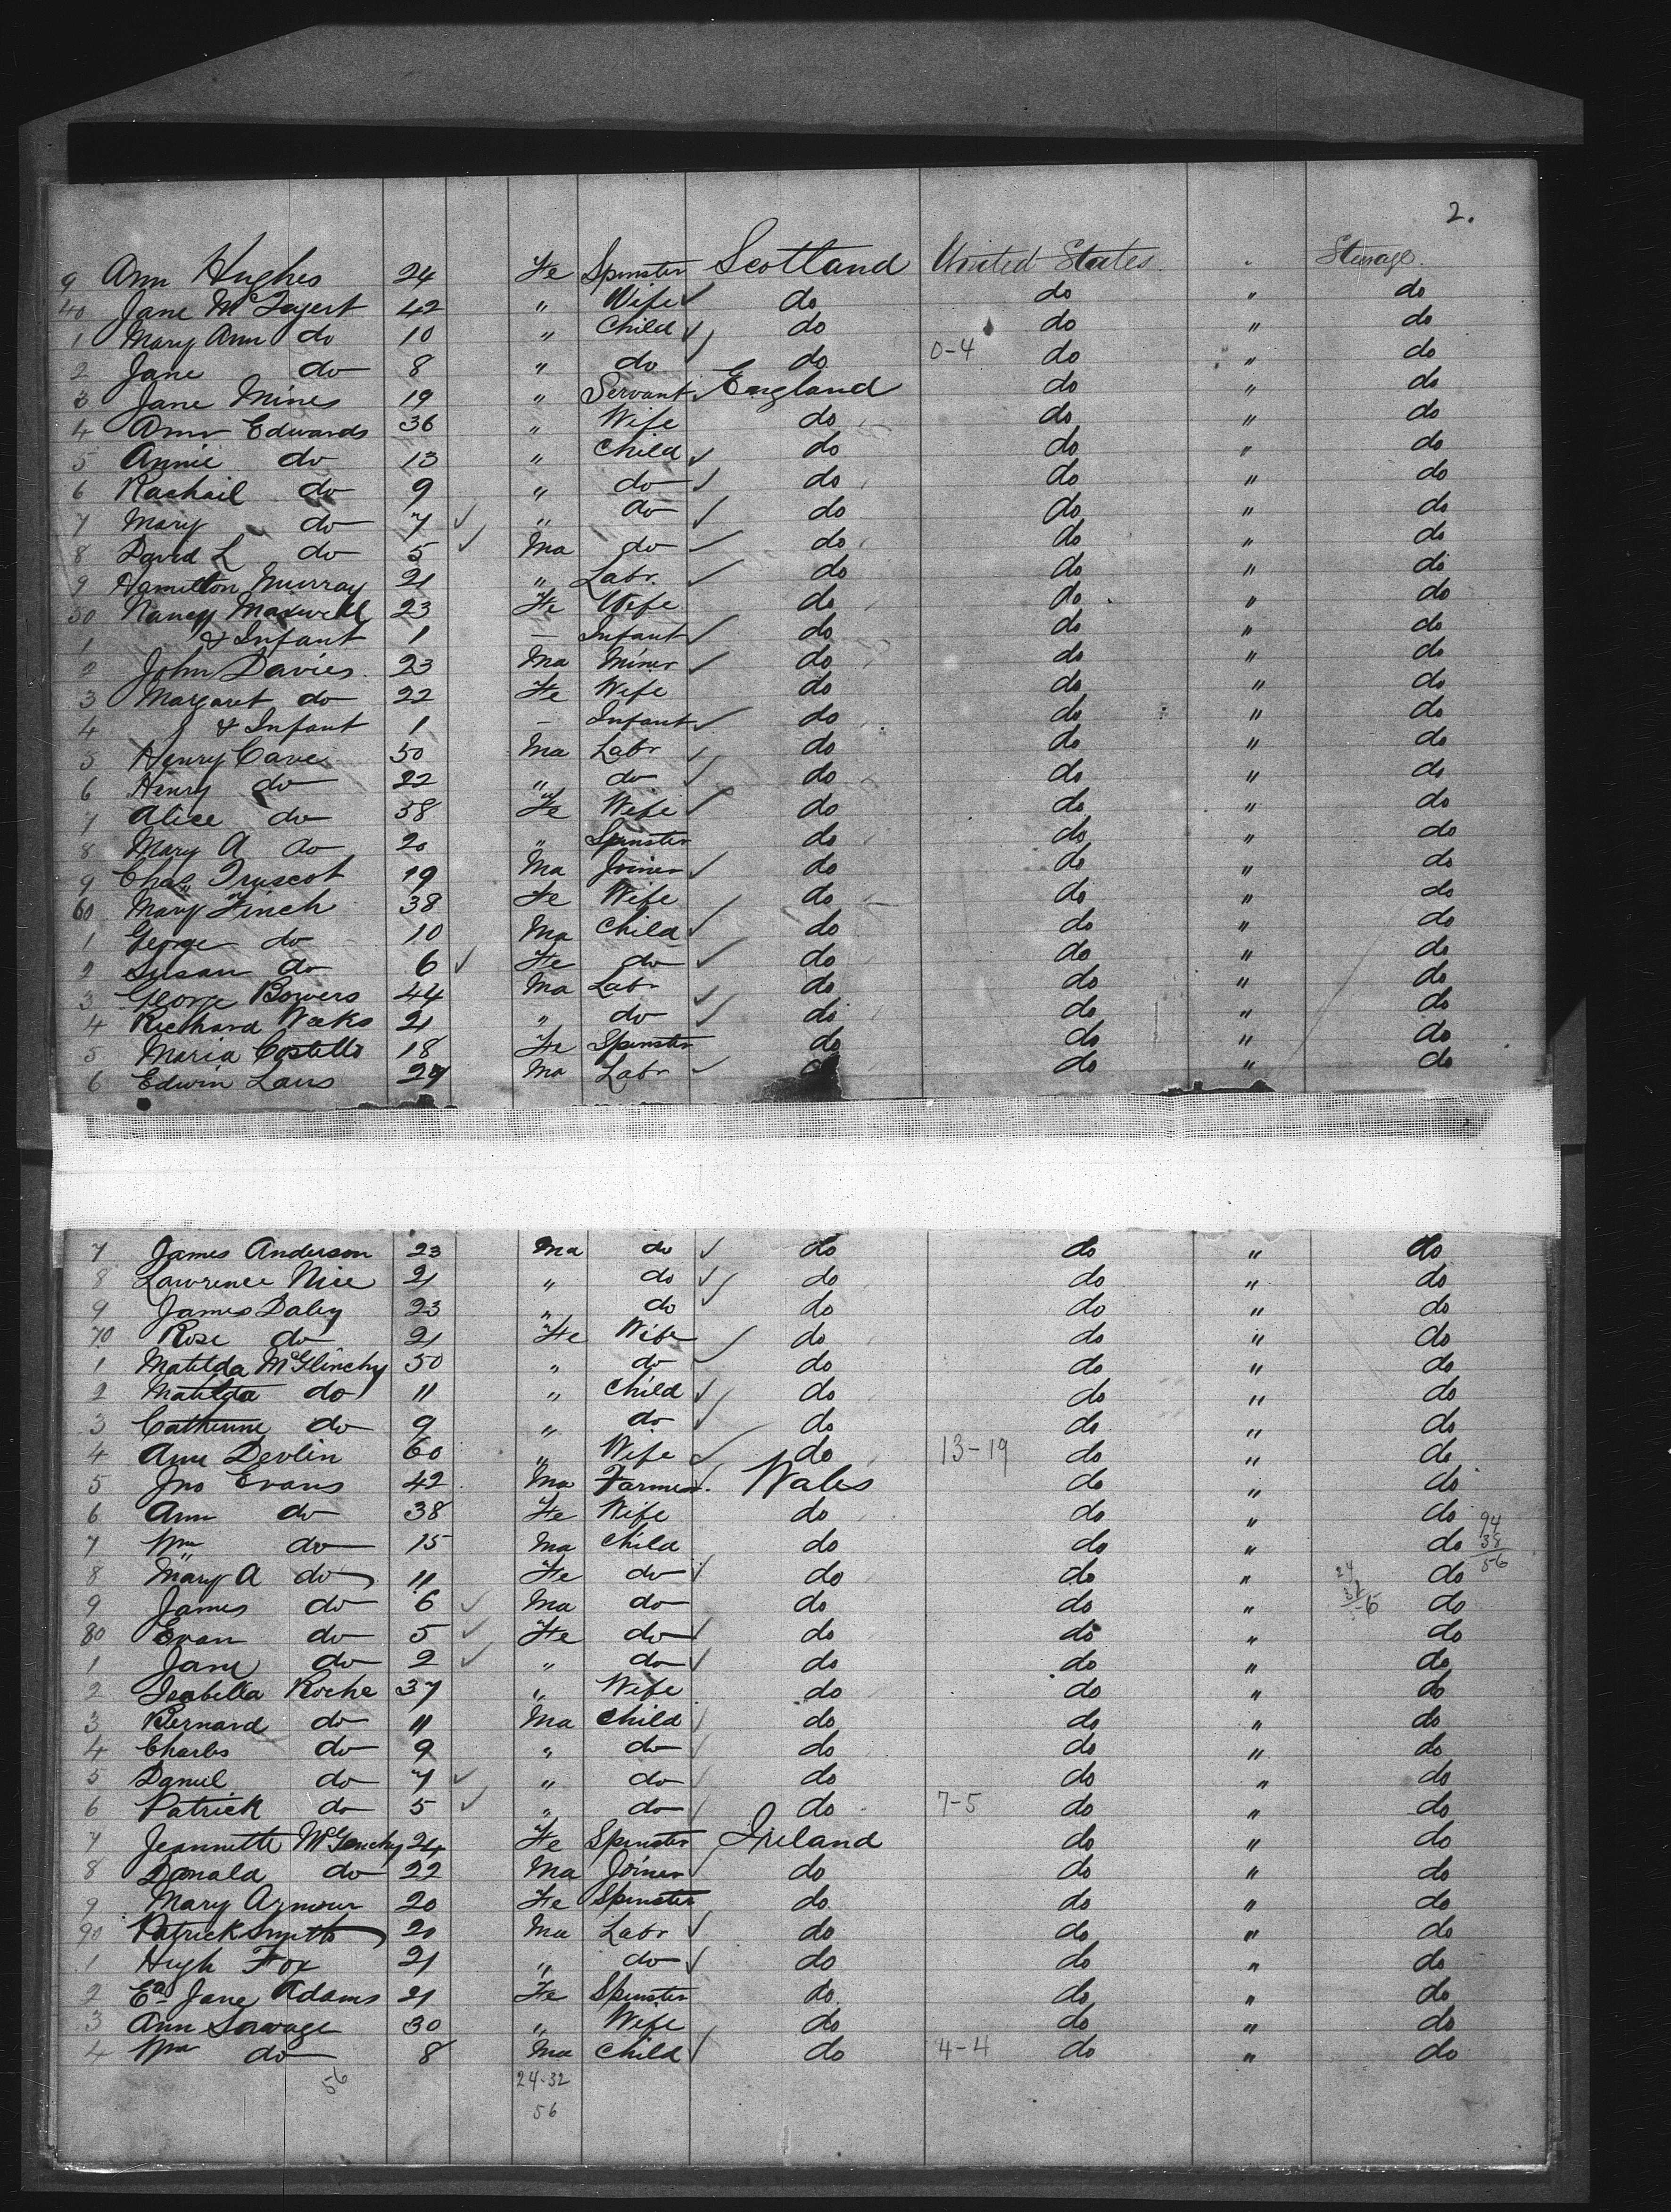 2.
9 Ann Hughes 24 Fe Spinster Scotland United States " Steerage
40 Jane 42 " Wife do do " do
1 Mary Ann do 10 " Child do do " do
2 Jane do 8 " do do 0-4 do " do
3 Jane Mines 19 " Servant England do " do
4 Ann Edwards 36 " Wife do do " do
5 Annie do 13 " Child do do " do
6 Rachail do 9 " do do do " do
7 Mary do 7 " do do do " do
8 David L do 5 Ma do do do " do
9 Hamilton Murray 21 " Labr. do do " do
50 Nancy Maxwell 23 Fe Wife do do " do
1 & Infant 1 — Infant do do " do
2 John Davies 23 Ma Miner do do " do
3 Margaret do 22 Fe Wife do do " do
4 & Infant 1 — Infant do do " do
5 Henry Cave 50 Ma Labr do do " do
6 Henry do 22 " do do do " do
7 Alice do 58 Fe Wife do do " do
8 Mary A do 20 " Spinster do do " do
9 Chas Truscot 19 Ma Joiner do do " do
60 Mary Finch 38 Fe Wife do do " do
1 George do 10 Ma Child do do " do
2 Susan do 6 Fe do do do " do
3 George Bowers 44 Ma Labr do do " do
4 Richard Weeks 21 " do do do " do
5 Maria Costello 18 Fe Spinster do do " do
6 Edwin Laws 27 Ma Labr do " do
7 James Anderson 23 Ma do do do " do
8 Lawrence Nice 21 " do do do " do
9 James Daley 23 " do do do " do
70 Rose do 21 Fe Wife do do " do
1 Matilda McGlinchy 50 " do do do " do
2 Matilda do 11 " Child do do " do
3 Catherine do 9 " do do do " do
4 Ann Devlin 60 " Wife do 13-19 do " do
5 Jno Evans 42 Ma Farmer Wales do " do
6 Ann do 38 Fe Wife do do " do
7 Wm do 15 Ma Child do do " do 94 38 56
8 Mary A do 11 Fe do do do " do
9 James do 6 Ma do do do " do
80 Evan do 5 Fe do do do " do
1 Jane do 2 " do do do " do
2 Isabella Roche 37 " Wife do do " do
3 Bernard do 11 Ma Child do do " do
4 Charles do 9 " do do do " do
5 Daniel do 7 " do do do " do
6 Patrick do 5 " do do 7-5 do " do
7 Jeannette 24 Fe Spinster Ireland do " do
8 Donald do 22 Ma Joiner do do " do
9 Mary Armour 20 Fe Spinster do do " do
90 Patrick Smith 20 Ma Labr do do " do
1 Hugh Fox 21 " do do do " do
2 Ea Jane Adams 21 Fe Spinster do do " do
3 Ann Savage 30 " Wife do do " do
4 Wm do 8 Ma Child do 4-4 do " do
56 24-32
56